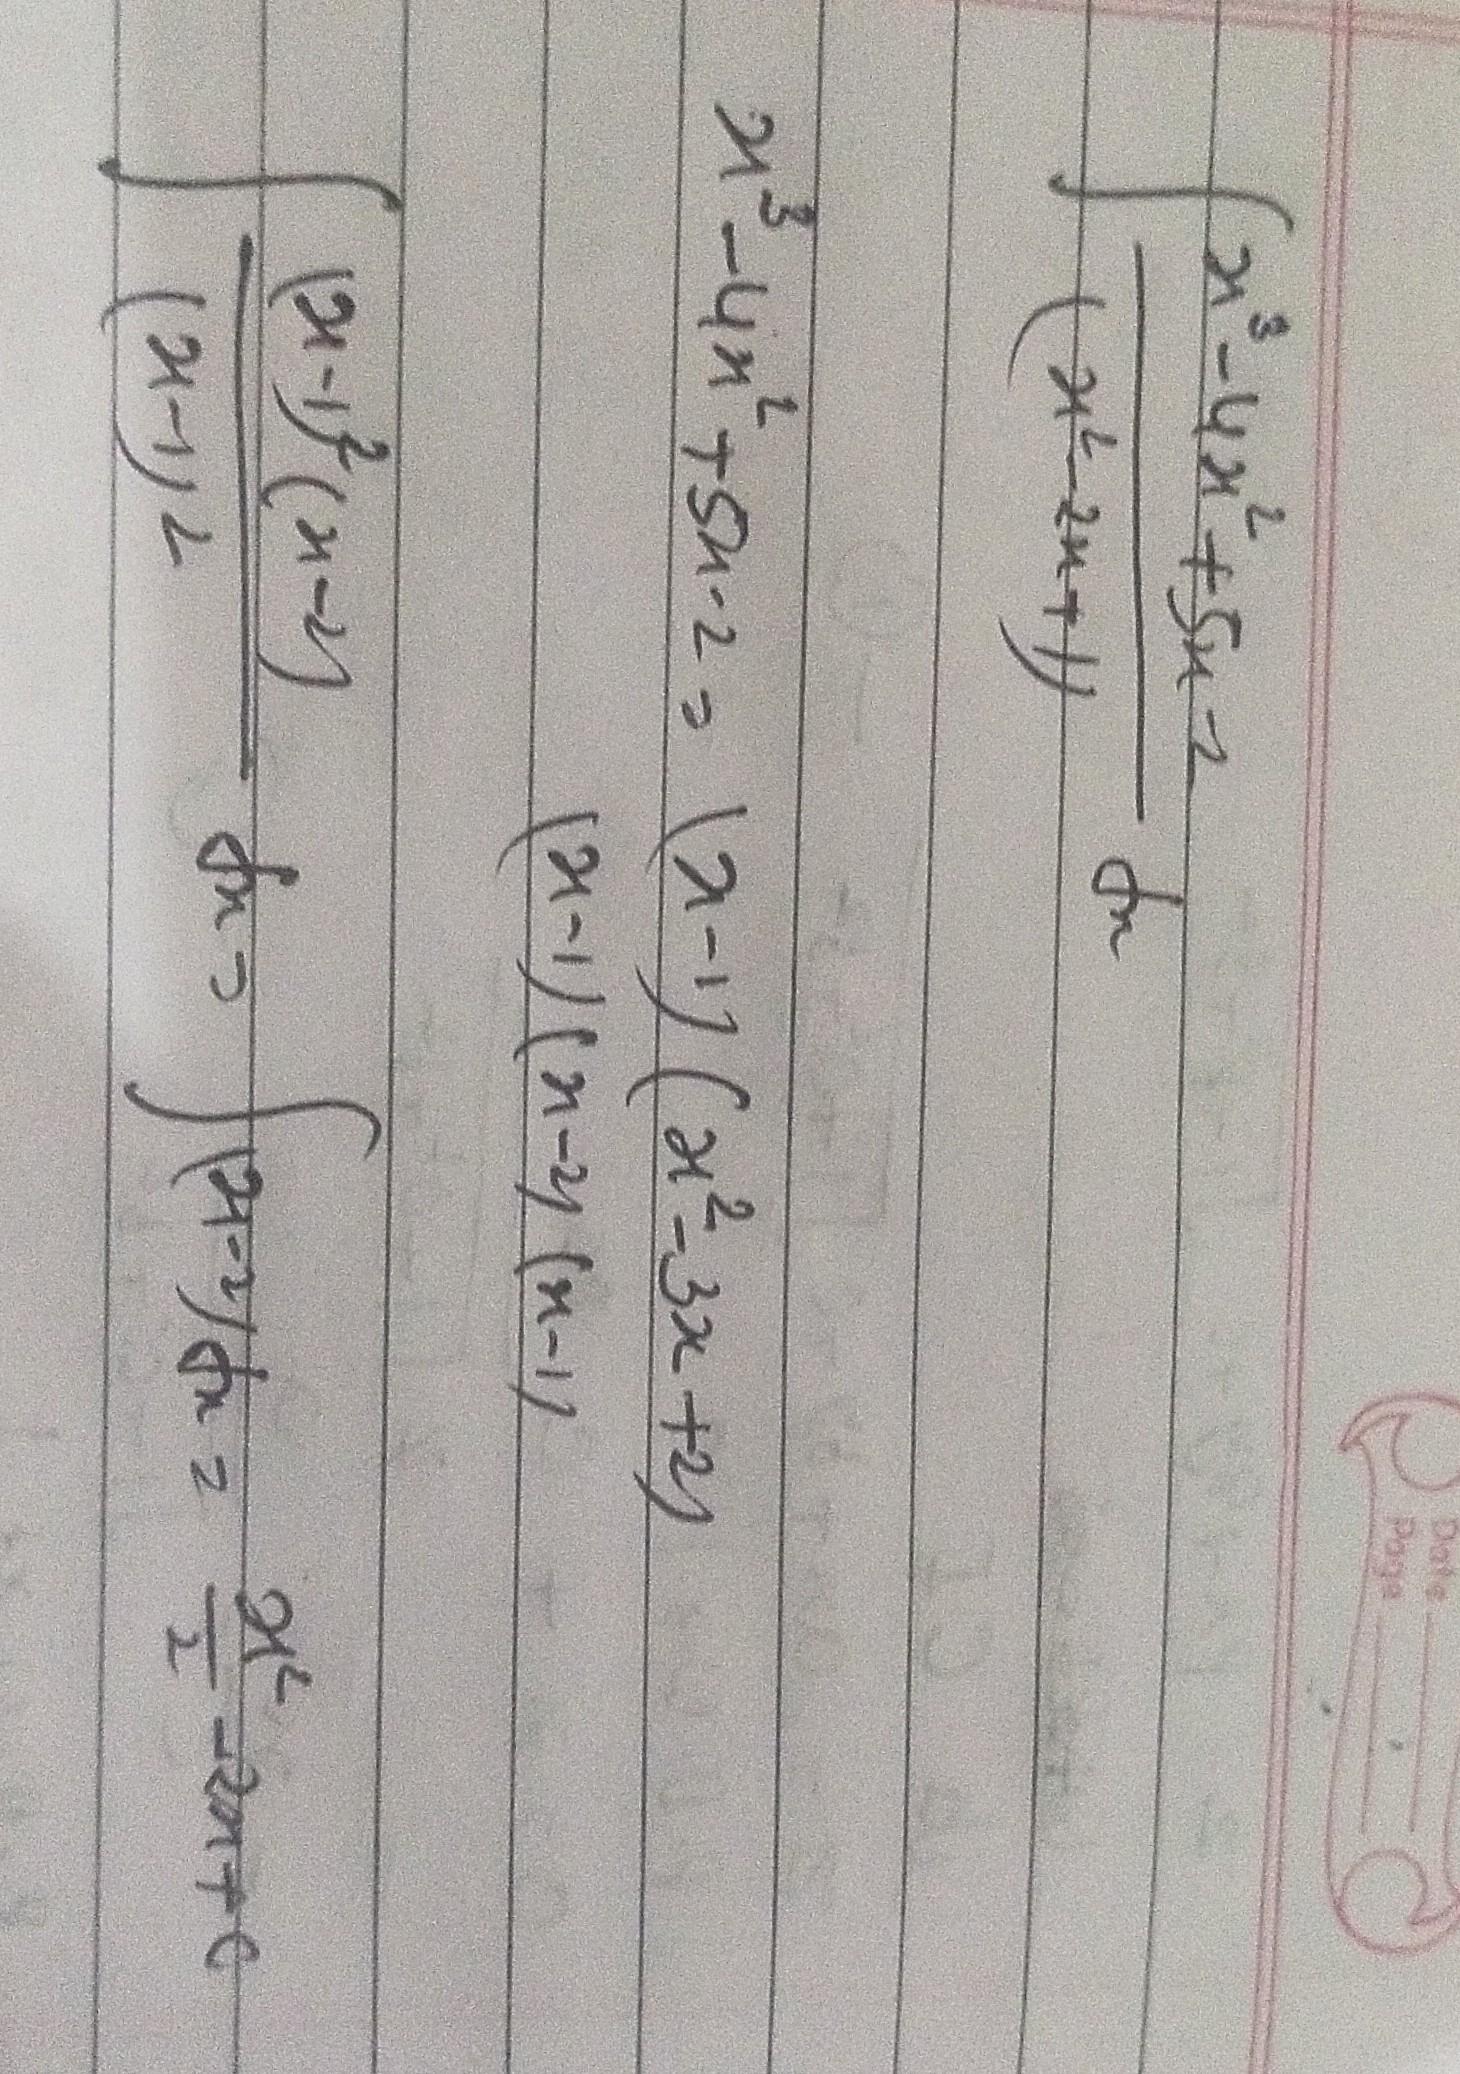 Date
Page
∫ x³-4x²+5x-2 / (x²-2x+1) dx
x³-4x²+5x-2 = (x-1)(x²-3x+2)
(x-1)(x-2)(x-1)
∫ (x-1)²(x-2) / (x-1)² dx = ∫(x-2)dx = x²/2 -2x+c